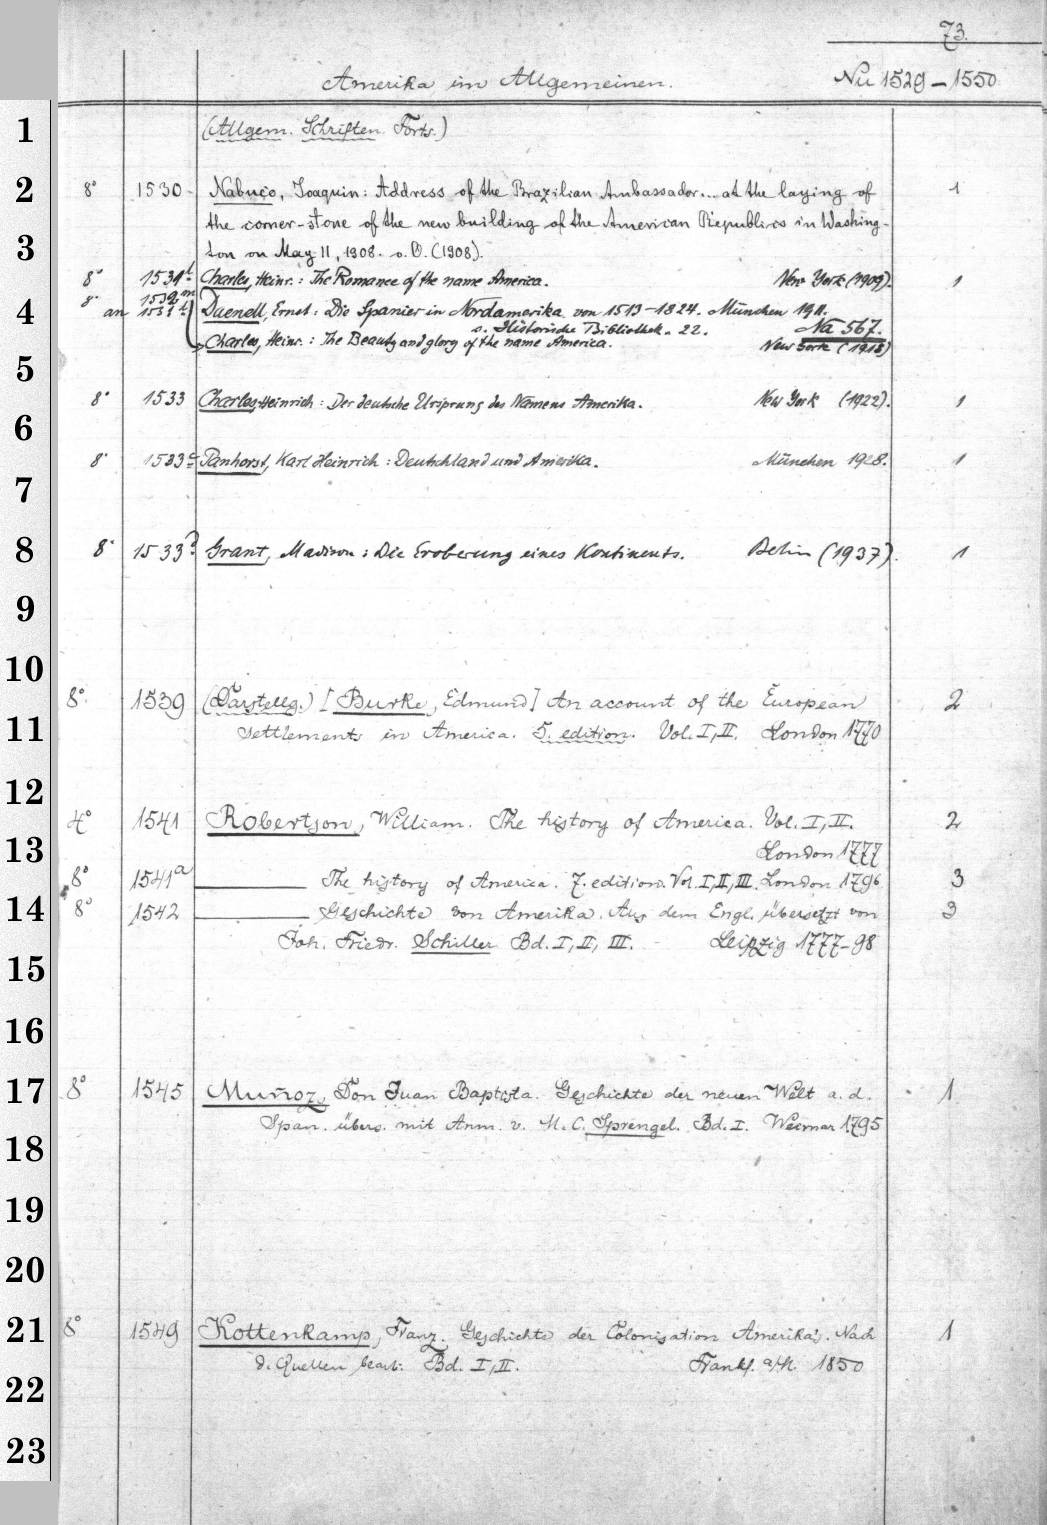 73.
Amerika im Allgemeinen. Nu 1529-1550
1 (Allgem. Schriften. Forts.)
2 8° 1530 Nabuco, Joaquin: Address of the Brazilian Ambassador... at the laying of 1
the corner-stone of the new building of the American Republics in Washing-
3 ton on May 11, 1908. o. O. (1908).
8° 1531 Charles, Heinr.: The Romance of the name America. New York (1909). 1
4 8° 1532 Daenell, Ernst: Die Spanier in Nordamerika von 1513-1824. München 1911.
an 1531 s. Historische Bibliothek. 22. Na 567.
Charles, Heinr.: The Beauty and glory of the name America. New York (1918)
5
8° 1533 Charles, Heinrich: Der deutsche Ursprung des Namens Amerika. New York (1922). 1
6
8° 1533c Panhorst, Karl Heinrich: Deutschland und Amerika. München 1928. 1
7
8 8° 1533 Grant, Madison: Die Eroberung eines Kontinents. Berlin (1937). 1
9
10
8° 1539 (Darstellg.) [Burke, Edmund] An account of the European 2
11 settlements in America. 5. edition. Vol. I, II. London 1770
12
4° 1541 Robertson, William. The history of America. Vol. I, II. 2
13 London 1777
8° 1541a ——— The history of America. 7. edition. Vol. I, II, III. London 1796 3
14 8° 1542 ——— Geschichte von Amerika. Aus dem Engl. übersetzt von 3
Joh. Friedr. Schiller Bd. I, II, III. - Leipzig 1777-98
15
16
17 8° 1545 Muñoz, Don Juan Baptista. Geschichte der neuen Welt a. d. 1
Span. übers. mit Anm. v. M. C. Sprengel. Bd. I. Weimar 1795
18
19
20
21 8° 1549 Kottenkamp, Franz. Geschichte der Colonisation Amerika's. Nach 1
d. Quellen bearb. Bd. I, II. Frankf. a/M. 1850
22
23